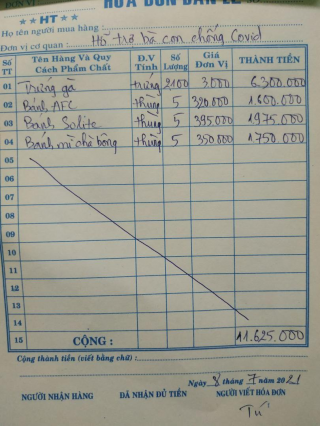 ĐƠN VỊ :
HÓA ĐƠN BÁN LẺ
★★HT★★
Họ tên người mua hàng :
Đơn vị cơ quan : Hỗ trợ bà con chống Covid
Số TT Tên Hàng Và Quy Cách Phẩm Chất Đ.V Tính Số Lượng Giá Đơn Vị THÀNH TIỀN
01 Trứng gà trứng 2100 3000 6.300.000
02 Bánh AFC thùng 5 320.000 1.600.000
03 Bánh Solite thùng 5 395.000 1975.000
04 Bánh mì chà bông thùng 5 350.000 1.750.000
05
06
07
08
09
10
11
12
13
14
15 CỘNG : 11.625.000
Cộng thành tiền (viết bằng chữ) :
Ngày 8 tháng 7 năm 2021
NGƯỜI NHẬN HÀNG ĐÃ NHẬN ĐỦ TIỀN NGƯỜI VIẾT HÓA ĐƠN
Tú